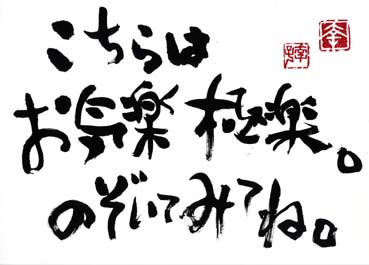 こちらは
お気楽極楽。
のぞいてみてね。